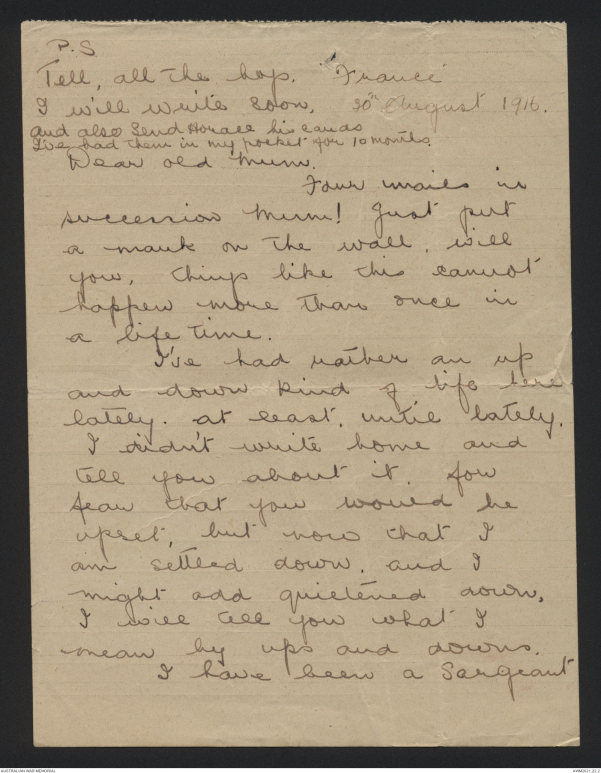 P.S
Tell, all the hop. "France"
I will write soon. 30th August 1916.
and also send Horace his cards
I've had them in my pocket for 10 months.
Dear old Mum.
Four mails in
succession Mum! Just put
a mark on the wall, will
you, things like this cannot
happen more than once in
a life time.
I've had rather an up
and down kind of life here
lately. at least, until lately.
I didn't write home and
tell you about it, for
fear that you would be
upset, but now that I
am settled down, and I
might add quietened down,
I will tell you what I
mean by ups and downs.
I have been a Sargeant
AUSTRALIAN WAR MEMORIAL